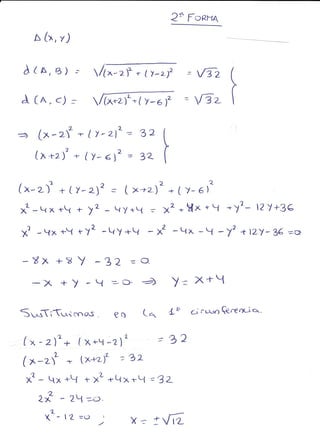 2ª FORMA
A (x, y)
d (A, B) = √(x-2)² + (y-2)² = √32
d (A, C) = √(x+2)² + (y-6)² = √32
⇒ (x-2)² + (y-2)² = 32
(x+2)² + (y-6)² = 32
(x-2)² + (y-2)² = (x+2)² + (y-6)²
x² -4x +4 + y² -4y +4 = x² +4x +4 +y² -12y +36
x² -4x +4 +y² -4y +4 -x² -4x -4 -y² +12y -36 =0
-8x +8y -32 =0
-x +y -4 =0 ⇒ y= x+4
Sustituimos en la 1ª circunferencia.
(x-2)² + (x+4-2)² = 32
(x-2)² + (x+2)² = 32
x² -4x +4 +x² +4x +4 =32
2x² -24 =0.
x² -12 =0 ; x= ±√12